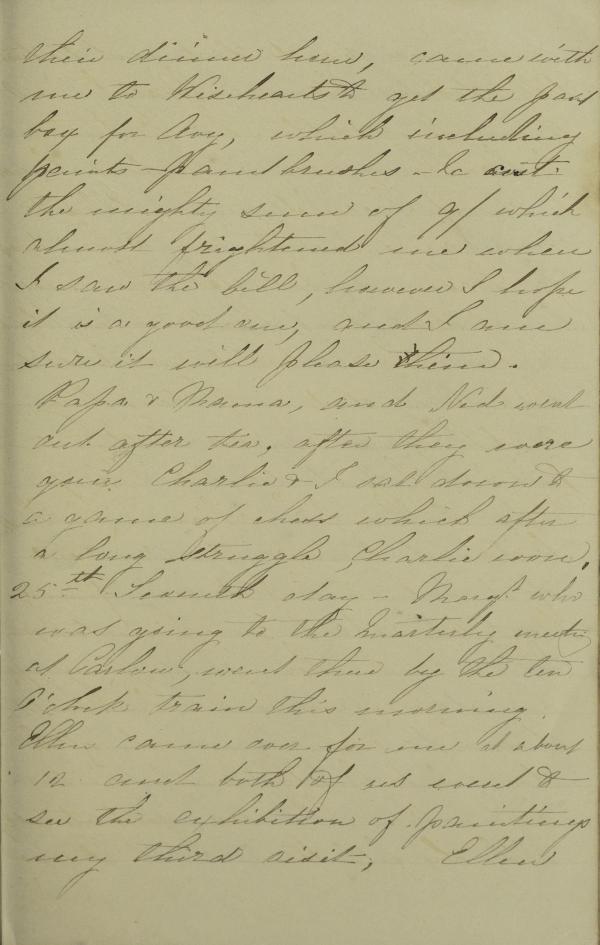 their dinner here, came with
me to Wiseheart's to get the paint
box for Avy, which including
paints and brushes - &c cost
the mighty sum of 9/ which
almost frightened me when
I saw the bill, however I hope
it is a good one, and I am
sure it will please them.
Papa & Mama, and Ned went
out after tea, after they were
gone Charlie & I sat down to
a game of chess which after
a long struggle Charlie won.
25th Seventh day - Margt who
was going to the Quarterly meeting
at Carlow, went there by the ten
O'clock train this morning.
Ellen came over for me at about
12 and both of us went to
see the exhibition of paintings
my third visit, Ellen